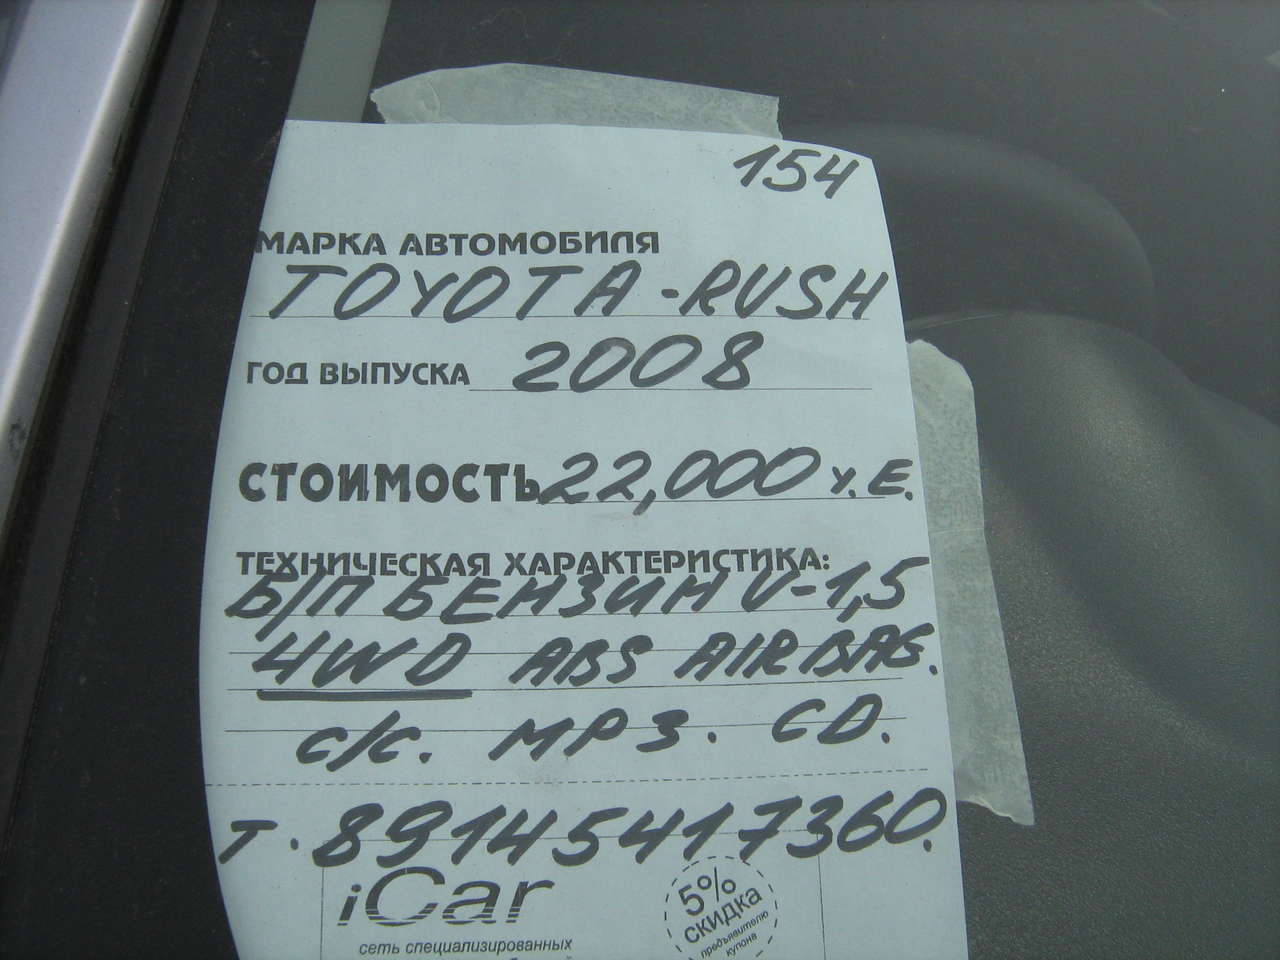 154
МАРКА АВТОМОБИЛЯ
TOYOTA-RUSH
ГОД ВЫПУСКА 2008
СТОИМОСТЬ 22,000 у.Е.
ТЕХНИЧЕСКАЯ ХАРАКТЕРИСТИКА:
Б/П БЕНЗИН V-1,5
4WD ABS AIRBAG.
с/с. MP3. CD.
Т. 89145417360.
iCar
сеть специализированных
5%
СКИДКА
предъявителю
купона